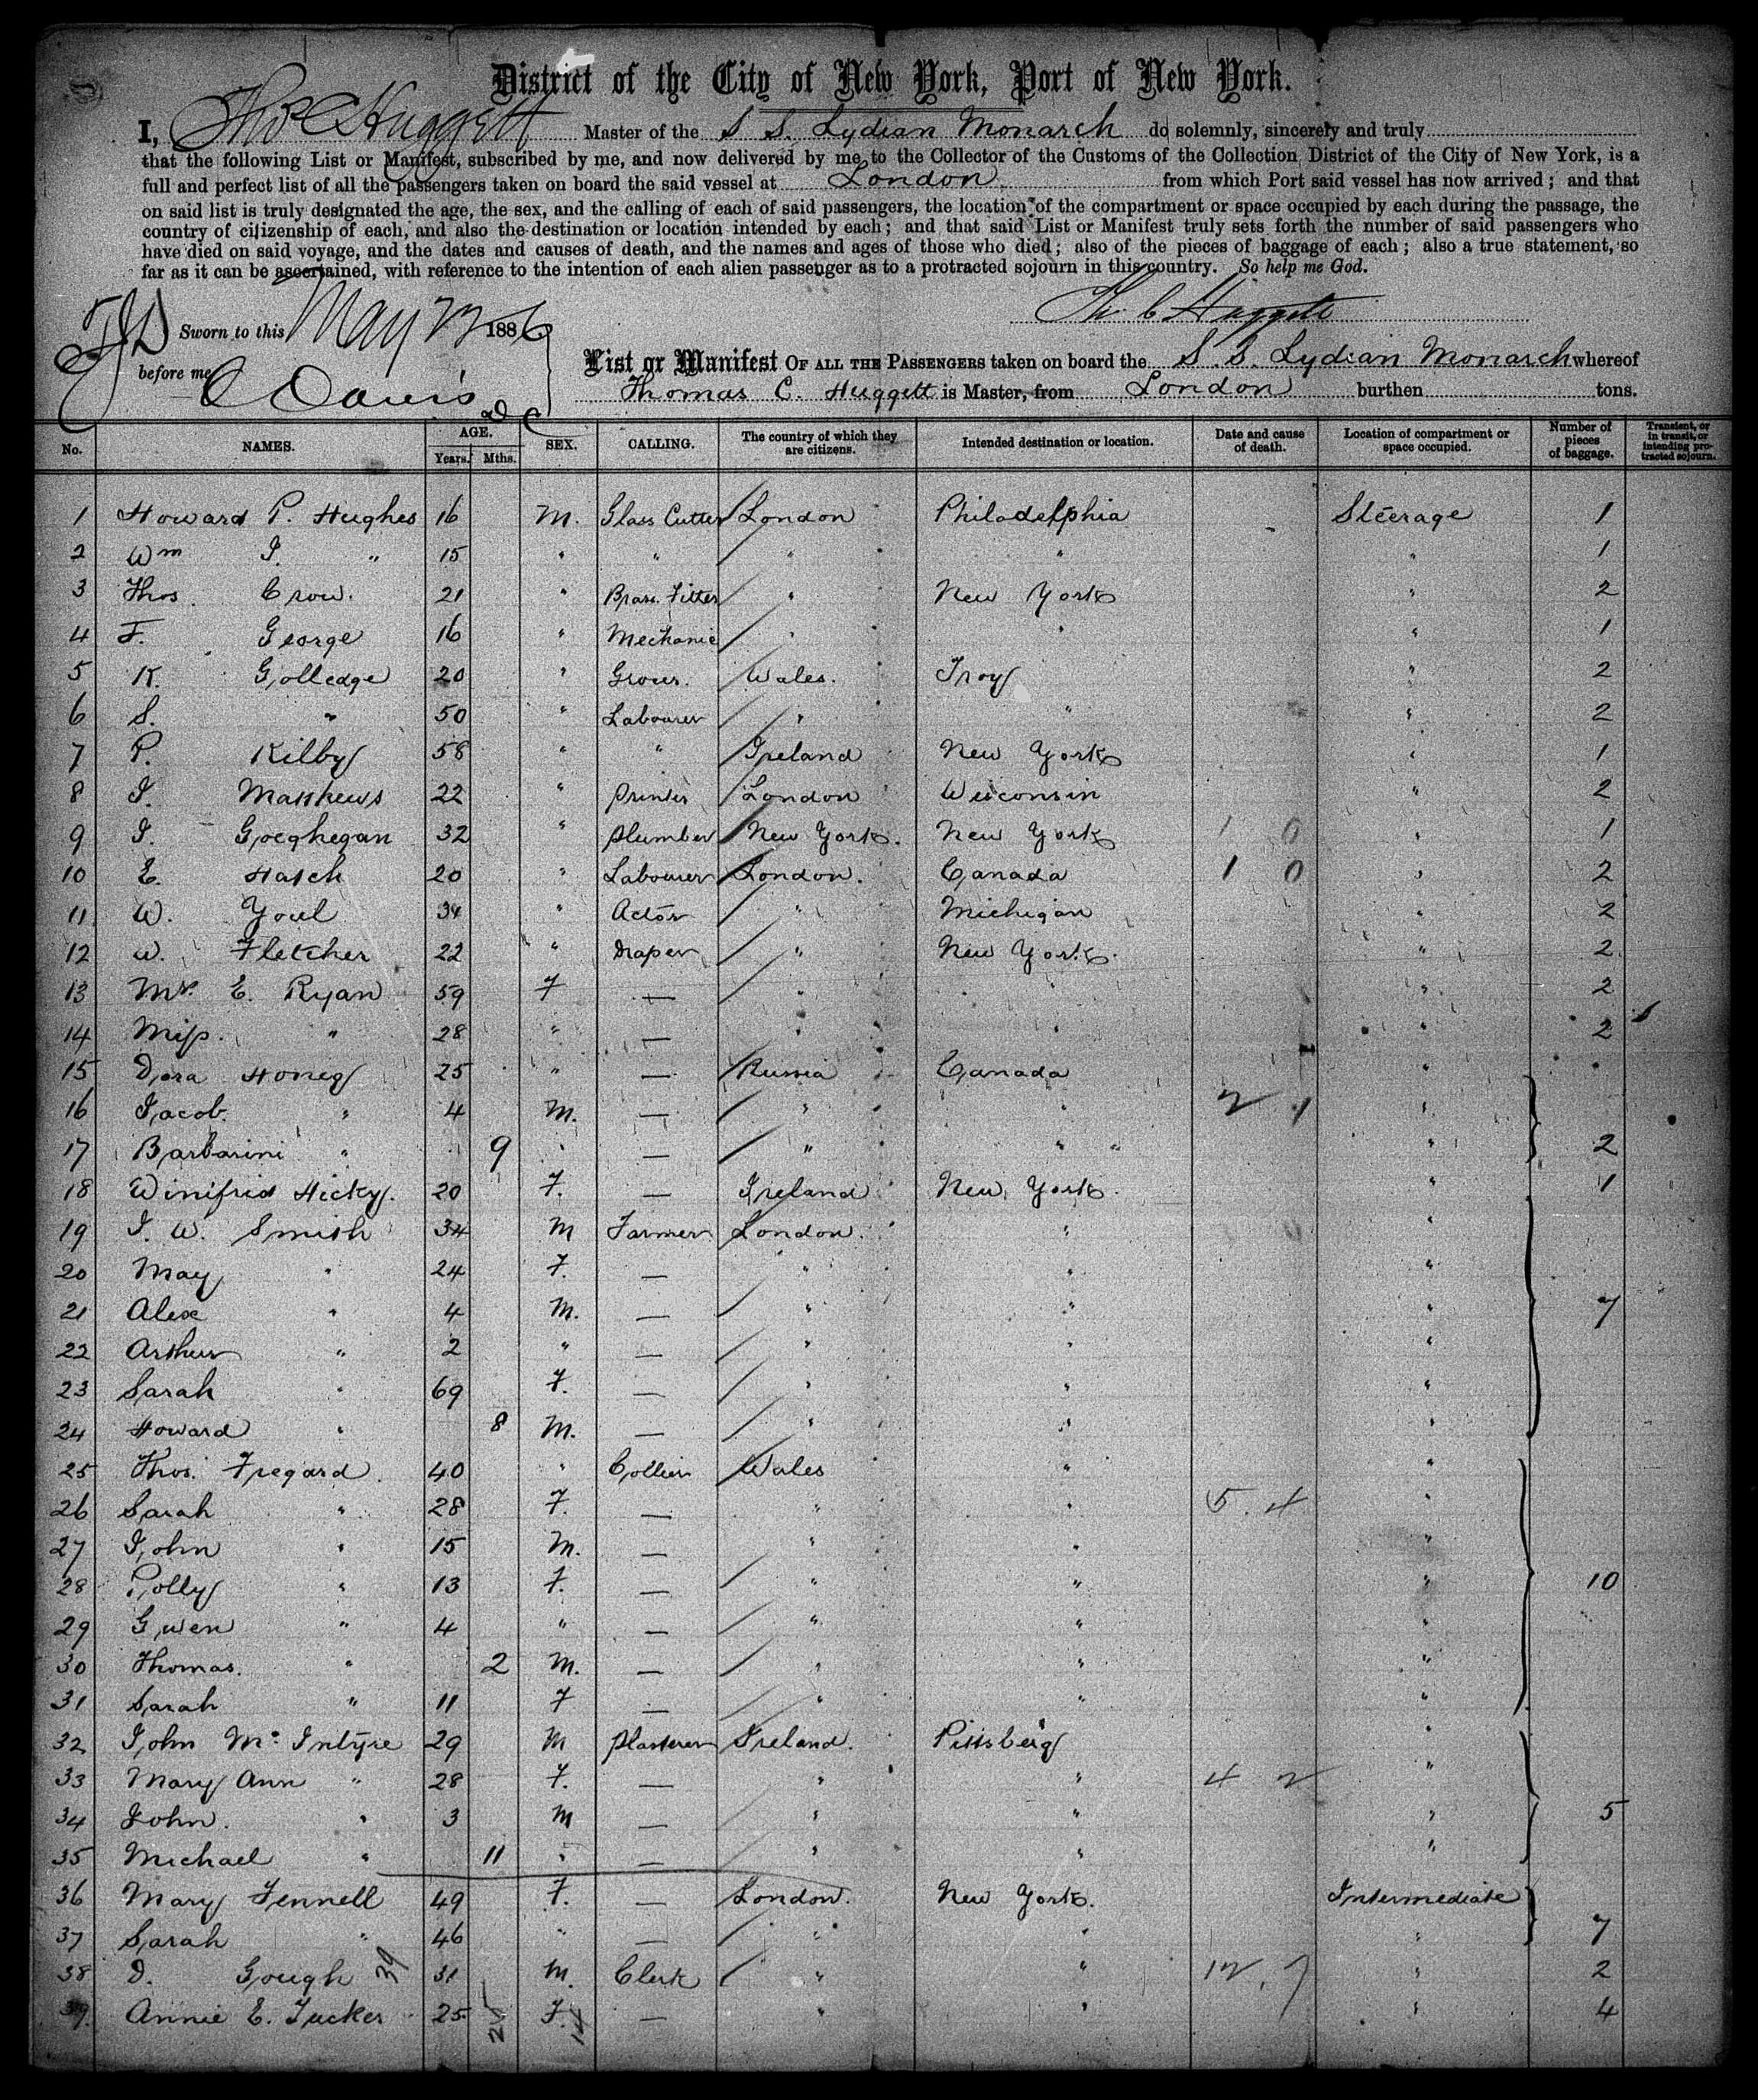 District of the City of New York, Port of New York.
I, Thos C Huggett Master of the S. S. Lydian Monarch do solemnly, sincerely and truly
that the following List or Manifest, subscribed by me, and now delivered by me to the Collector of the Customs of the Collection District of the City of New York, is a
full and perfect list of all the passengers taken on board the said vessel at London from which Port said vessel has now arrived; and that
on said list is truly designated the age, the sex, and the calling of each of said passengers, the location of the compartment or space occupied by each during the passage, the
country of citizenship of each, and also the destination or location intended by each; and that said List or Manifest truly sets forth the number of said passengers who
have died on said voyage, and the dates and causes of death, and the names and ages of those who died; also of the pieces of baggage of each; also a true statement, so
far as it can be ascertained, with reference to the intention of each alien passenger as to a protracted sojourn in this country. So help me God.
Sworn to this May 1886
Th. C Huggett
before me C Davis
List or Manifest OF ALL THE PASSENGERS taken on board the S. S. Lydian Monarch whereof
Thomas C. Huggett is Master, from London burthen tons.
No. NAMES. AGE. Years. Mths. SEX. CALLING. The country of which they are citizens. Intended destination or location. Date and cause of death. Location of compartment or space occupied. Number of pieces of baggage. Transient, or in transit, or intending protracted sojourn.
1 Howard P. Hughes 16 M. Glass Cutter London Philadelphia Steerage 1
2 Wm J. " 15 " " " " " 1
3 Thos. Crow. 21 " Brass Fitter " New York " 2
4 F. George 16 " Mechanic " " " 1
5 K. Golledge 20 " Grocer. Wales. Troy " 2
6 S. " 50 " Labourer " " " 2
7 P. Kilby 58 " " Ireland New York " 1
8 J. Matthews 22 " Printer London Wisconsin " 2
9 J. Goeghegan 32 " Plumber New York. New York 1 0 " 1
10 E. Hatch 20 " Labourer London. Canada 1 0 " 2
11 W. Youl 34 " Actor " Michigan " 2
12 W. Fletcher 22 " Draper " New York. " 2
13 Mrs. E. Ryan 59 F — " " " 2
14 Miss. " 28 " — " " " 2
15 Dora Honig 25 " — Russia Canada "
16 Jacob. " 4 M. — " " 2 1 "
17 Barbarini " 9 " — " " " 2
18 Winifrid Hicky. 20 F. — Ireland New York. " 1
19 J. W. Smith 34 M Farmer London. " "
20 May " 24 F. — " " "
21 Alex " 4 M. — " " " 7
22 Arthur " 2 " — " " "
23 Sarah " 69 F. — " " "
24 Howard " 8 M. — " " "
25 Thos. Tregard. 40 " Collier Wales " "
26 Sarah " 28 F. — " " 5 4 "
27 John " 15 M. — " " "
28 Polly " 13 F. — " " " 10
29 Gwen " 4 " — " " "
30 Thomas. " 2 M. — " " "
31 Sarah " 11 F — " " "
32 John Mc Intyre 29 M Plasterer Ireland. Pittsberg "
33 Mary Ann " 28 F. — " " 4 2 "
34 John. " 3 M — " " " 5
35 Michael " 11 " — " " "
36 Mary Fennell 49 F. — London. New York. Intermediate
37 Sarah " 46 " — " " " 7
38 D. Gough 39 31 M. Clerk " " 12. 7 " 2
39. Annie E. Tucker 25 25 F. 14 — " " " 4